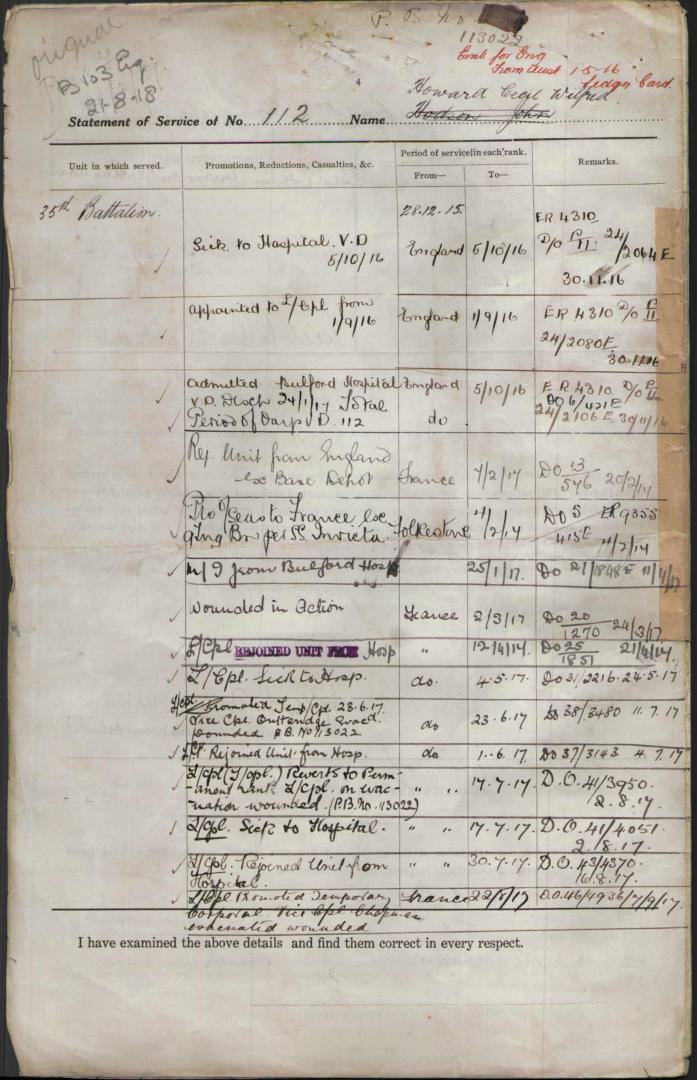 original
P. B. No.
113022
B103 Eq
21-8-18
Emb for Eng
From Aust 1-5-16
Ledger Card.
4
Howard Cecil Wilfred
Statement of Service of No. 112 Name Hodson John
Unit in which served. Promotions, Reductions, Casualties, &c. Period of service in each rank. Remarks.
From— To—
35th Battalion. 28.12.15.
Sick to Hospital. V.D England 5/10/16 ER 4310
5/10/16 D/O P/II 24/2064E
30.11.16
appointed to L/Cpl from England 1/9/16 ER 4310 D/O P/II
1/9/16 24/2080E
30.11.16
admitted Bulford Hospital England 5/10/16 ER 4310 D/O P/II
V.D. Disch 24/1/17 Total DO 6/421E
Period of Days V.D. 112 do 24/2106 E 30/11/16
Rej. Unit from England DO 13
ex Base Depot France 7/2/17 576 20/2/17
Pro o/seas to France ex 4/ DO 5 ER 9355
9 Tng Bn per SS Invicta. Folkestone 2/17 415E 4/2/17
m/I from Bulford Hosp 25/1/17. Do 21/1848E 11/4/17
Wounded in Action France 2/3/17 Do 20
1270 24/3/17.
L/Cpl REJOINED UNIT FROM Hosp " 12/4/17. Do 25 21/4/17.
1851
L/Cpl. Sick to Hosp. do. 4.5.17. Do 31/2216.24.5.17
L/Cpl Promoted Temp/Cpl 23.6.17. Do 38/3480 11.7.17
vice Cpl Outteridge Evacd. do 23.6.17
wounded P.B. No 113022
L/Cpl Rejoined Unit from Hosp. do 1.6.17 Do 37/3143 4.7.17
L/Cpl (T/Cpl.) Reverts to Perm- " " 17.7.17 D.O. 41/3950.
-anent rank L/Cpl. on evac- 2.8.17.
-uation wounded. (P.B. No. 113022)
L/Cpl. Sick to Hospital. " " 17.7.17. D.O. 41/4051.
2.8.17.
L/Cpl. Rejoined Unit from " " 30.7.17. D.O. 43/4370.
Hospital. 16.8.17.
L/Cpl Promoted Temporary France 22/8/17 D.O. 46/4936/7/9/17.
Corporal. Vice Cpl. Chapman
evacuated wounded
I have examined the above details and find them correct in every respect.